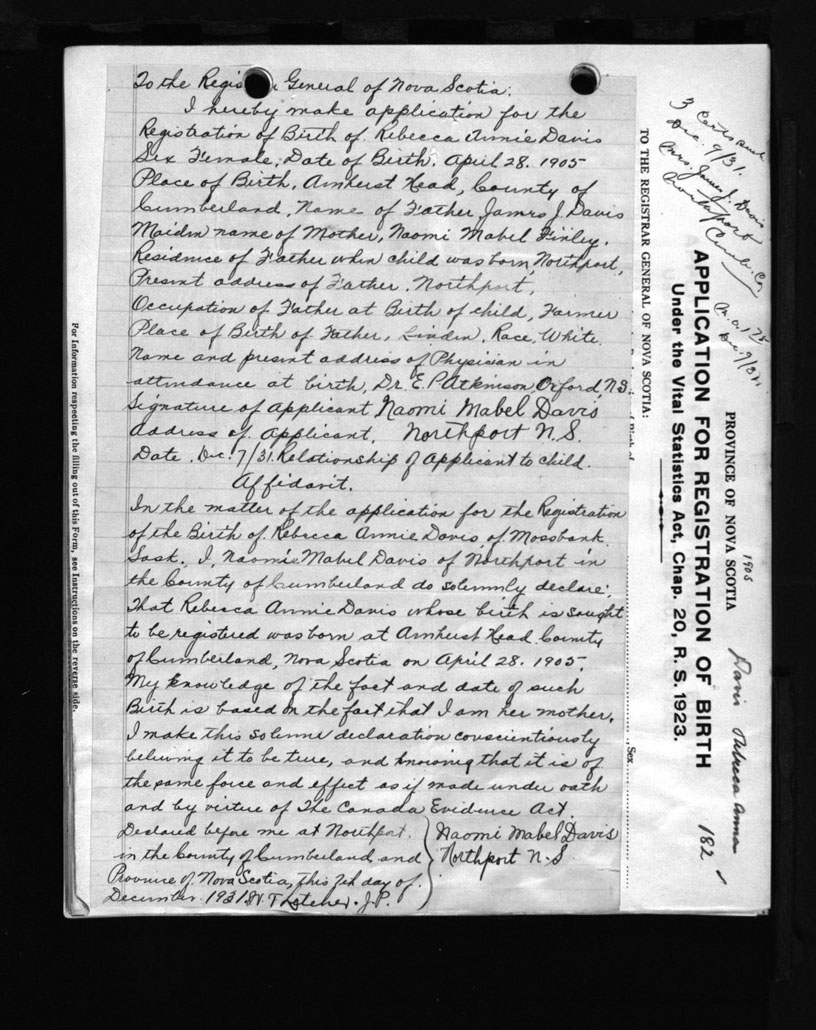 To the Regis General of Nova Scotia:
I hereby make application for the
Registration of Birth of. Rebecca Annie Davis
Sex Female; Date of Birth. April 28. 1905
Place of Birth, Amherst Head, County of
Cumberland, Name of Father James J. Davis
Maiden name of Mother, Naomi Mabel Finley.
Residence of Father when child was born, Northport,
Present address of Father. Northport,
Occupation of Father at Birth of child, Farmer
Place of Birth of Father, Linden, Race, White.
Name and present address of Physician in
attendance at birth, Dr. E. P. Atkinson Oxford, N.S.
Signature of Applicant Naomi Mabel Davis
Address of Applicant, Northport N.S.
Date. Dec. 7/31. Relationship of Applicant to child.
Affidavit.
In the matter of the application for the Registration
of the Birth of Rebecca Annie Davis, of Mossbank
Sask. I, Naomi Mabel Davis of Northport in
the County of Cumberland do solemnly declare:
That Rebecca Annie Davis whose birth is sought
to be registered was born at Amherst Head County
of Cumberland, Nova Scotia on April 28. 1905.
My knowledge of the fact and date of such
Birth is based on the fact that I am her mother.
I make this solemn declaration conscientiously
believing it to be true, and knowing that it is of
the same force and effect as if made under oath
and by virtue of The Canada Evidence Act.
Declared before me at Northport.
in the County of Cumberland, and
Province of Nova Scotia, this 7th day of.
December. 1931. J.P.
Naomi Mabel Davis
Northport N.S
TO THE REGISTRAR GENERAL OF NOVA SCOTIA:
Sex
3 Certs
Dec. 9/31.
Mrs. James J. Davis
Northport
Cumb. Co.
Dec. 9/31.
PROVINCE OF NOVA SCOTIA
APPLICATION FOR REGISTRATION OF BIRTH
Under the Vital Statistics Act, Chap. 20, R. S. 1923.
1905
Davis Rebecca Anna
182
For Information respecting the filling out of this Form, see Instructions on the reverse side.